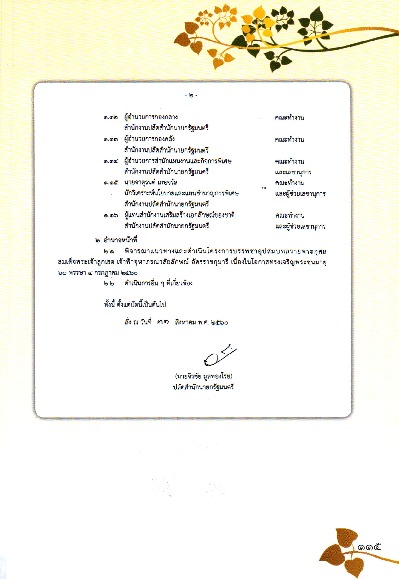 - ๒ -
๑.๓๒ ผู้อำนวยการกองกลาง คณะทำงาน
สำนักงานปลัดสำนักนายกรัฐมนตรี
๑.๓๓ ผู้อำนวยการกองคลัง คณะทำงาน
สำนักงานปลัดสำนักนายกรัฐมนตรี
๑.๓๔ ผู้อำนวยการสำนักแผนงานและกิจการพิเศษ คณะทำงาน
สำนักงานปลัดสำนักนายกรัฐมนตรี และเลขานุการ
๑.๓๕ คณะทำงาน
นักวิเคราะห์นโยบายและแผนชำนาญการพิเศษ และผู้ช่วยเลขานุการ
สำนักงานปลัดสำนักนายกรัฐมนตรี
๑.๓๖ ผู้แทนสำนักงานเสริมสร้างเอกลักษณ์ของชาติ คณะทำงาน
สำนักงานปลัดสำนักนายกรัฐมนตรี และผู้ช่วยเลขานุการ
๒. อำนาจหน้าที่
๒.๑ พิจารณาแนวทางและดำเนินโครงการบรรพชาอุปสมบทถวายพระกุศล
สมเด็จพระเจ้าลูกเธอ เจ้าฟ้าจุฬาภรณวลัยลักษณ์ อัครราชกุมารี เนื่องในโอกาสทรงเจริญพระชนมายุ
๖๐ พรรษา ๔ กรกฎาคม ๒๕๖๐
๒.๒ ดำเนินการอื่น ๆ ที่เกี่ยวข้อง
ทั้งนี้ ตั้งแต่บัดนี้เป็นต้นไป
สั่ง ณ วันที่ สิงหาคม พ.ศ. ๒๕๖๐
(นายจิรชัย มูลทองโร่ย)
ปลัดสำนักนายกรัฐมนตรี
๑๑๕